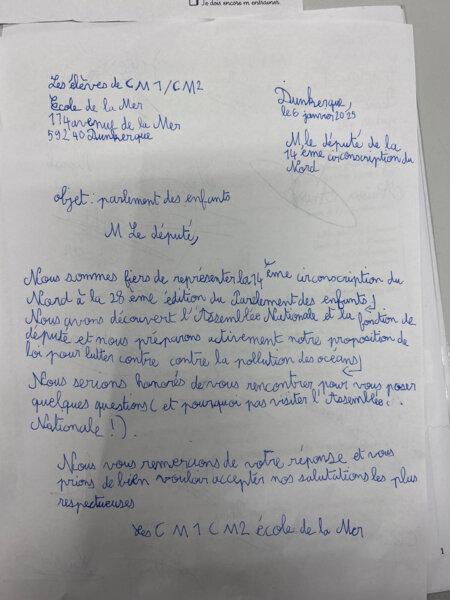 Je dois encore m'entrainer
Les élèves de CM1/CM2
Ecole de la Mer
174 avenue de la Mer
59240 Dunkerque
Dunkerque,
le 6 janvier 2025
M le député de la
14 ème circonscription du
Nord
objet : parlement des enfants
M Le député,
Nous sommes fiers de représenter la 14 ème circonscription du
Nord à la 28 ème édition du Parlement des enfants
Nous avons découvert l'Assemblée Nationale et la fonction de
député et nous préparons activement notre proposition de
loi pour lutter contre contre la pollution des océans
Nous serions honorés de vous rencontrer pour vous poser
quelques questions ( et pourquoi pas visiter l'Assemblée
Nationale !).
Nous vous remercions de votre réponse et vous
prions de bien vouloir accepter nos salutations les plus
respectueuses
Les CM1 CM2 école de la Mer
1